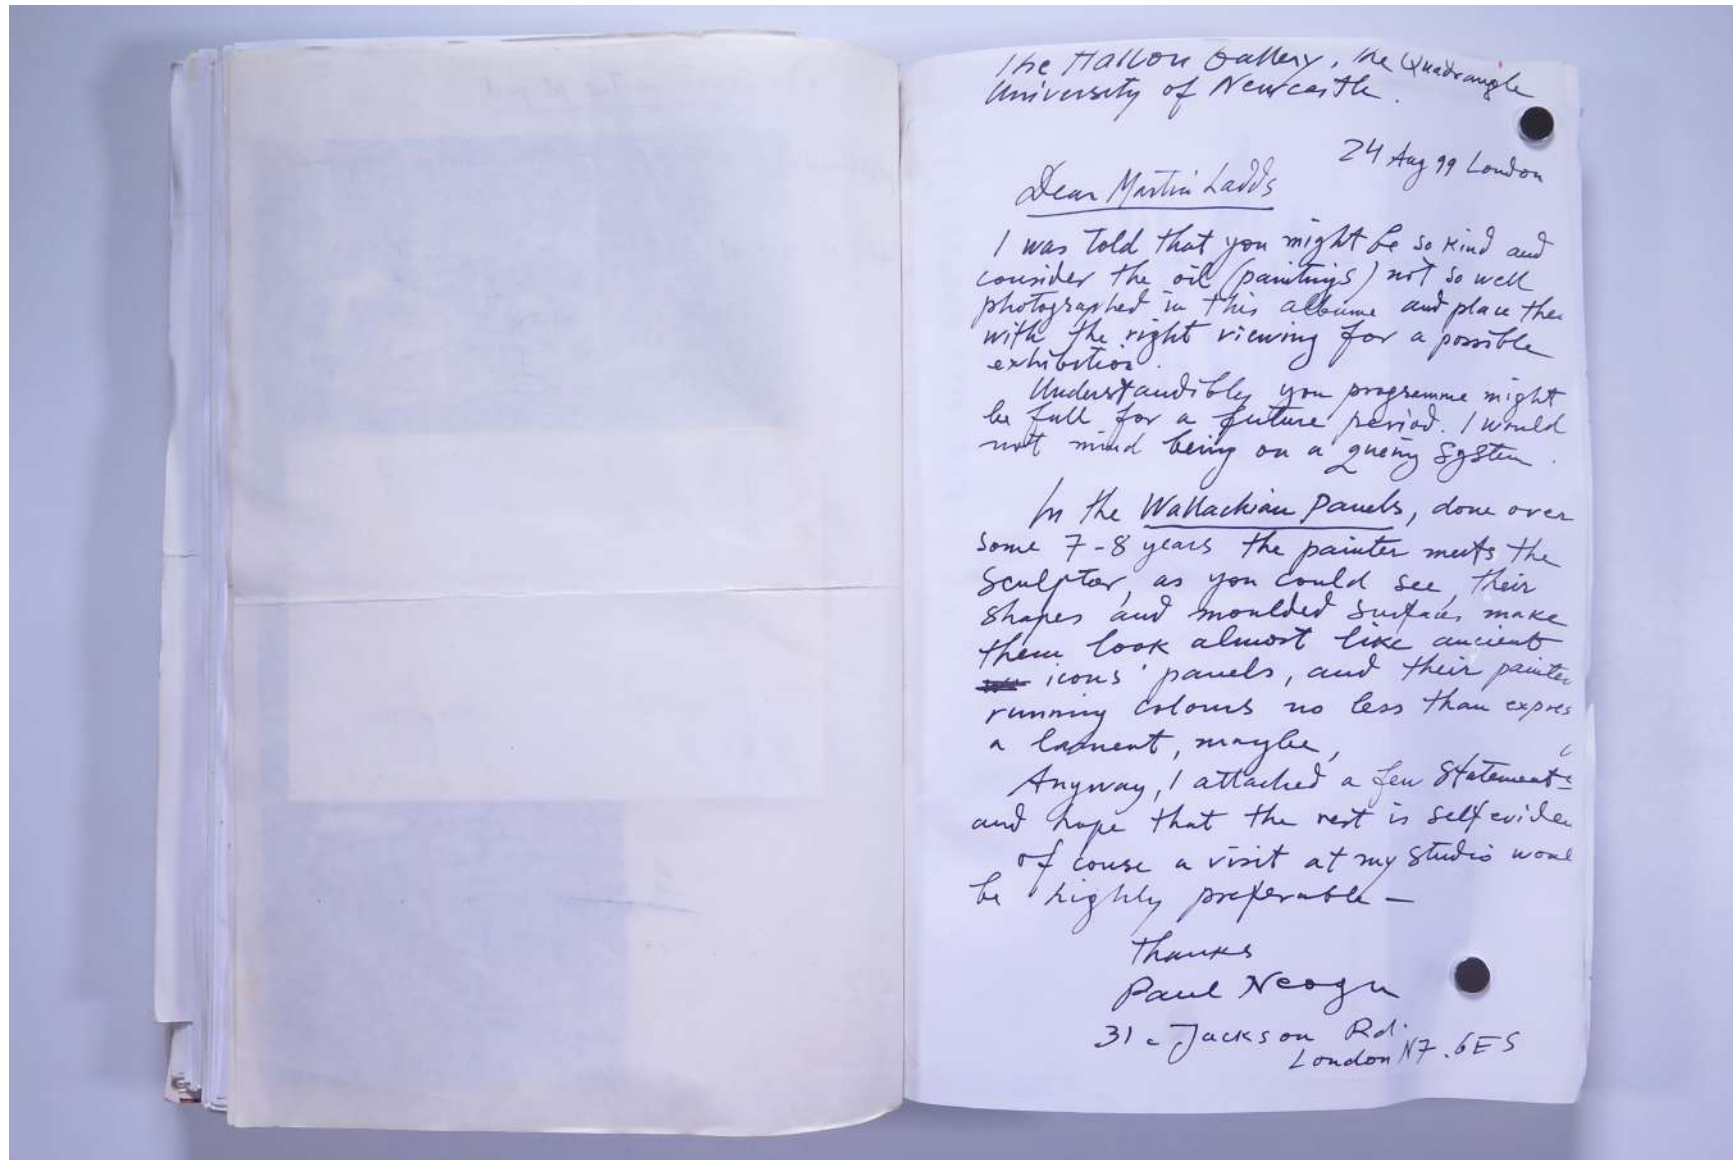 The Hatton Gallery, The Quadrangle
University of Newcastle.
24 Aug 99 London
Dear Martin Ladds
I was told that you might be so kind and
consider the oil (paintings) not so well
photographed in this albume and place the
with the right viewing for a possible
exhibition.
Understandibly you programme might
be full for a future period. I would
not mind being on a queing system.
In the Wallachian Panels, done over
some 7-8 years the painter meets the
sculptor, as you could see, their
shapes and moulded surfaces make
them look almost like ancient
icons' panels, and their painter
running colours no less than expres
a lament, maybe,
Anyway, I attached a few statements
and hope that the rest is self eviden
of couse a visit at my studio woul
be highly preferable —
Thanks
Paul Neagu
31c Jackson Rd.
London N7.6ES